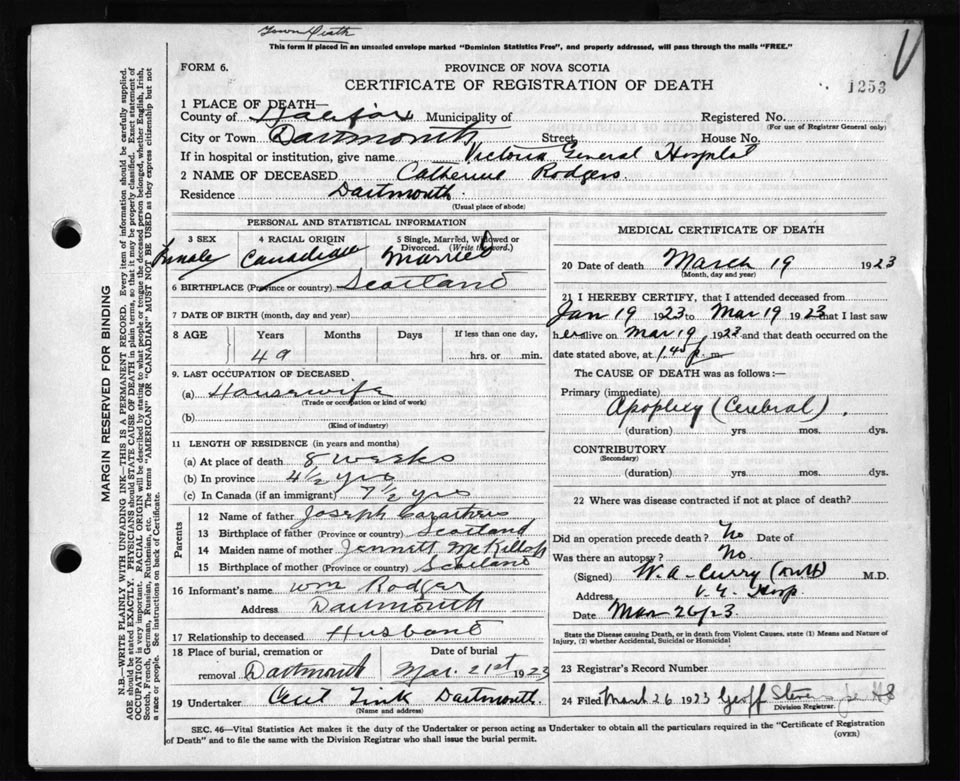 Town Death
This form if placed in an unsealed envelope marked "Dominion Statistics Free", and properly addressed, will pass through the mails "FREE."
FORM 6.
PROVINCE OF NOVA SCOTIA
CERTIFICATE OF REGISTRATION OF DEATH
1253
1 PLACE OF DEATH—
County of Halifax Municipality of Registered No.
(For use of Registrar General only)
City or Town Dartmouth Street House No.
If in hospital or institution, give name Victoria General Hospital
2 NAME OF DECEASED Catherine Rodgers
Residence Dartmouth
(Usual place of abode)
PERSONAL AND STATISTICAL INFORMATION
3 SEX 4 RACIAL ORIGIN 5 Single, Married, Widowed or Divorced. (Write the word.)
Female Canadian Married
6 BIRTHPLACE (Province or country) Scotland
7 DATE OF BIRTH (month, day and year)
8 AGE Years Months Days If less than one day,
49 hrs. or min.
9. LAST OCCUPATION OF DECEASED
(a) Housewife
(Trade or occupation or kind of work)
(b)
(Kind of industry)
11 LENGTH OF RESIDENCE (in years and months)
(a) At place of death 8 weeks
(b) In province 4 1/2 yrs
(c) In Canada (if an immigrant) 7 1/2 yrs
Parents
12 Name of father Joseph Carathers
13 Birthplace of father (Province or country) Scotland
14 Maiden name of mother Jennett McKillop
15 Birthplace of mother (Province or country) Scotland
16 Informant's name Wm Rodger
Address Dartmouth
17 Relationship to deceased Husband
18 Place of burial, cremation or Date of burial
removal Dartmouth Mar. 21st 1923
19 Undertaker Dartmouth.
(Name and address)
MEDICAL CERTIFICATE OF DEATH
20 Date of death March 19 1923
(Month, day and year)
21 I HEREBY CERTIFY, that I attended deceased from
Jan 19 1923 to Mar 19 1923 that I last saw
her alive on Mar 19 1923 and that death occurred on the
date stated above, at 1.45 p. m
The CAUSE OF DEATH was as follows:—
Primary (immediate)
Apoplexy (Cerebral).
(duration) yrs. mos. dys.
CONTRIBUTORY
(Secondary)
(duration) yrs. mos. dys.
22 Where was disease contracted if not at place of death?
Did an operation precede death? No Date of
Was there an autopsy? No
(Signed) W. A. Curry M.D.
Address V. G. Hosp.
Date Mar 26/23.
State the Disease causing Death, or in death from Violent Causes, state (1) Means and Nature of
Injury, (2) whether Accidental, Suicidal or Homicidal
23 Registrar's Record Number
24 Filed March 26 1923 Geoff Stevens
Division Registrar.
SEC. 46—Vital Statistics Act makes it the duty of the Undertaker or person acting as Undertaker to obtain all the particulars required in the "Certificate of Registration
of Death" and to file the same with the Division Registrar who shall issue the burial permit.
(OVER)
MARGIN RESERVED FOR BINDING
N.B.—WRITE PLAINLY WITH UNFADING INK—THIS IS A PERMANENT RECORD. Every item of information should be carefully supplied.
AGE should be stated EXACTLY. PHYSICIANS should STATE CAUSE OF DEATH in plain terms, so that it may be properly classified. Exact statement of
OCCUPATION is very important. RACIAL ORIGIN will be described by stating to what people or tongue the deceased person belonged, whether English, Irish,
Scotch, French, German, Russian, Ruthenian, etc. The terms "AMERICAN" OR "CANADIAN" MUST NOT BE USED as they express citizenship but not
a race or people. See instructions on back of Certificate.